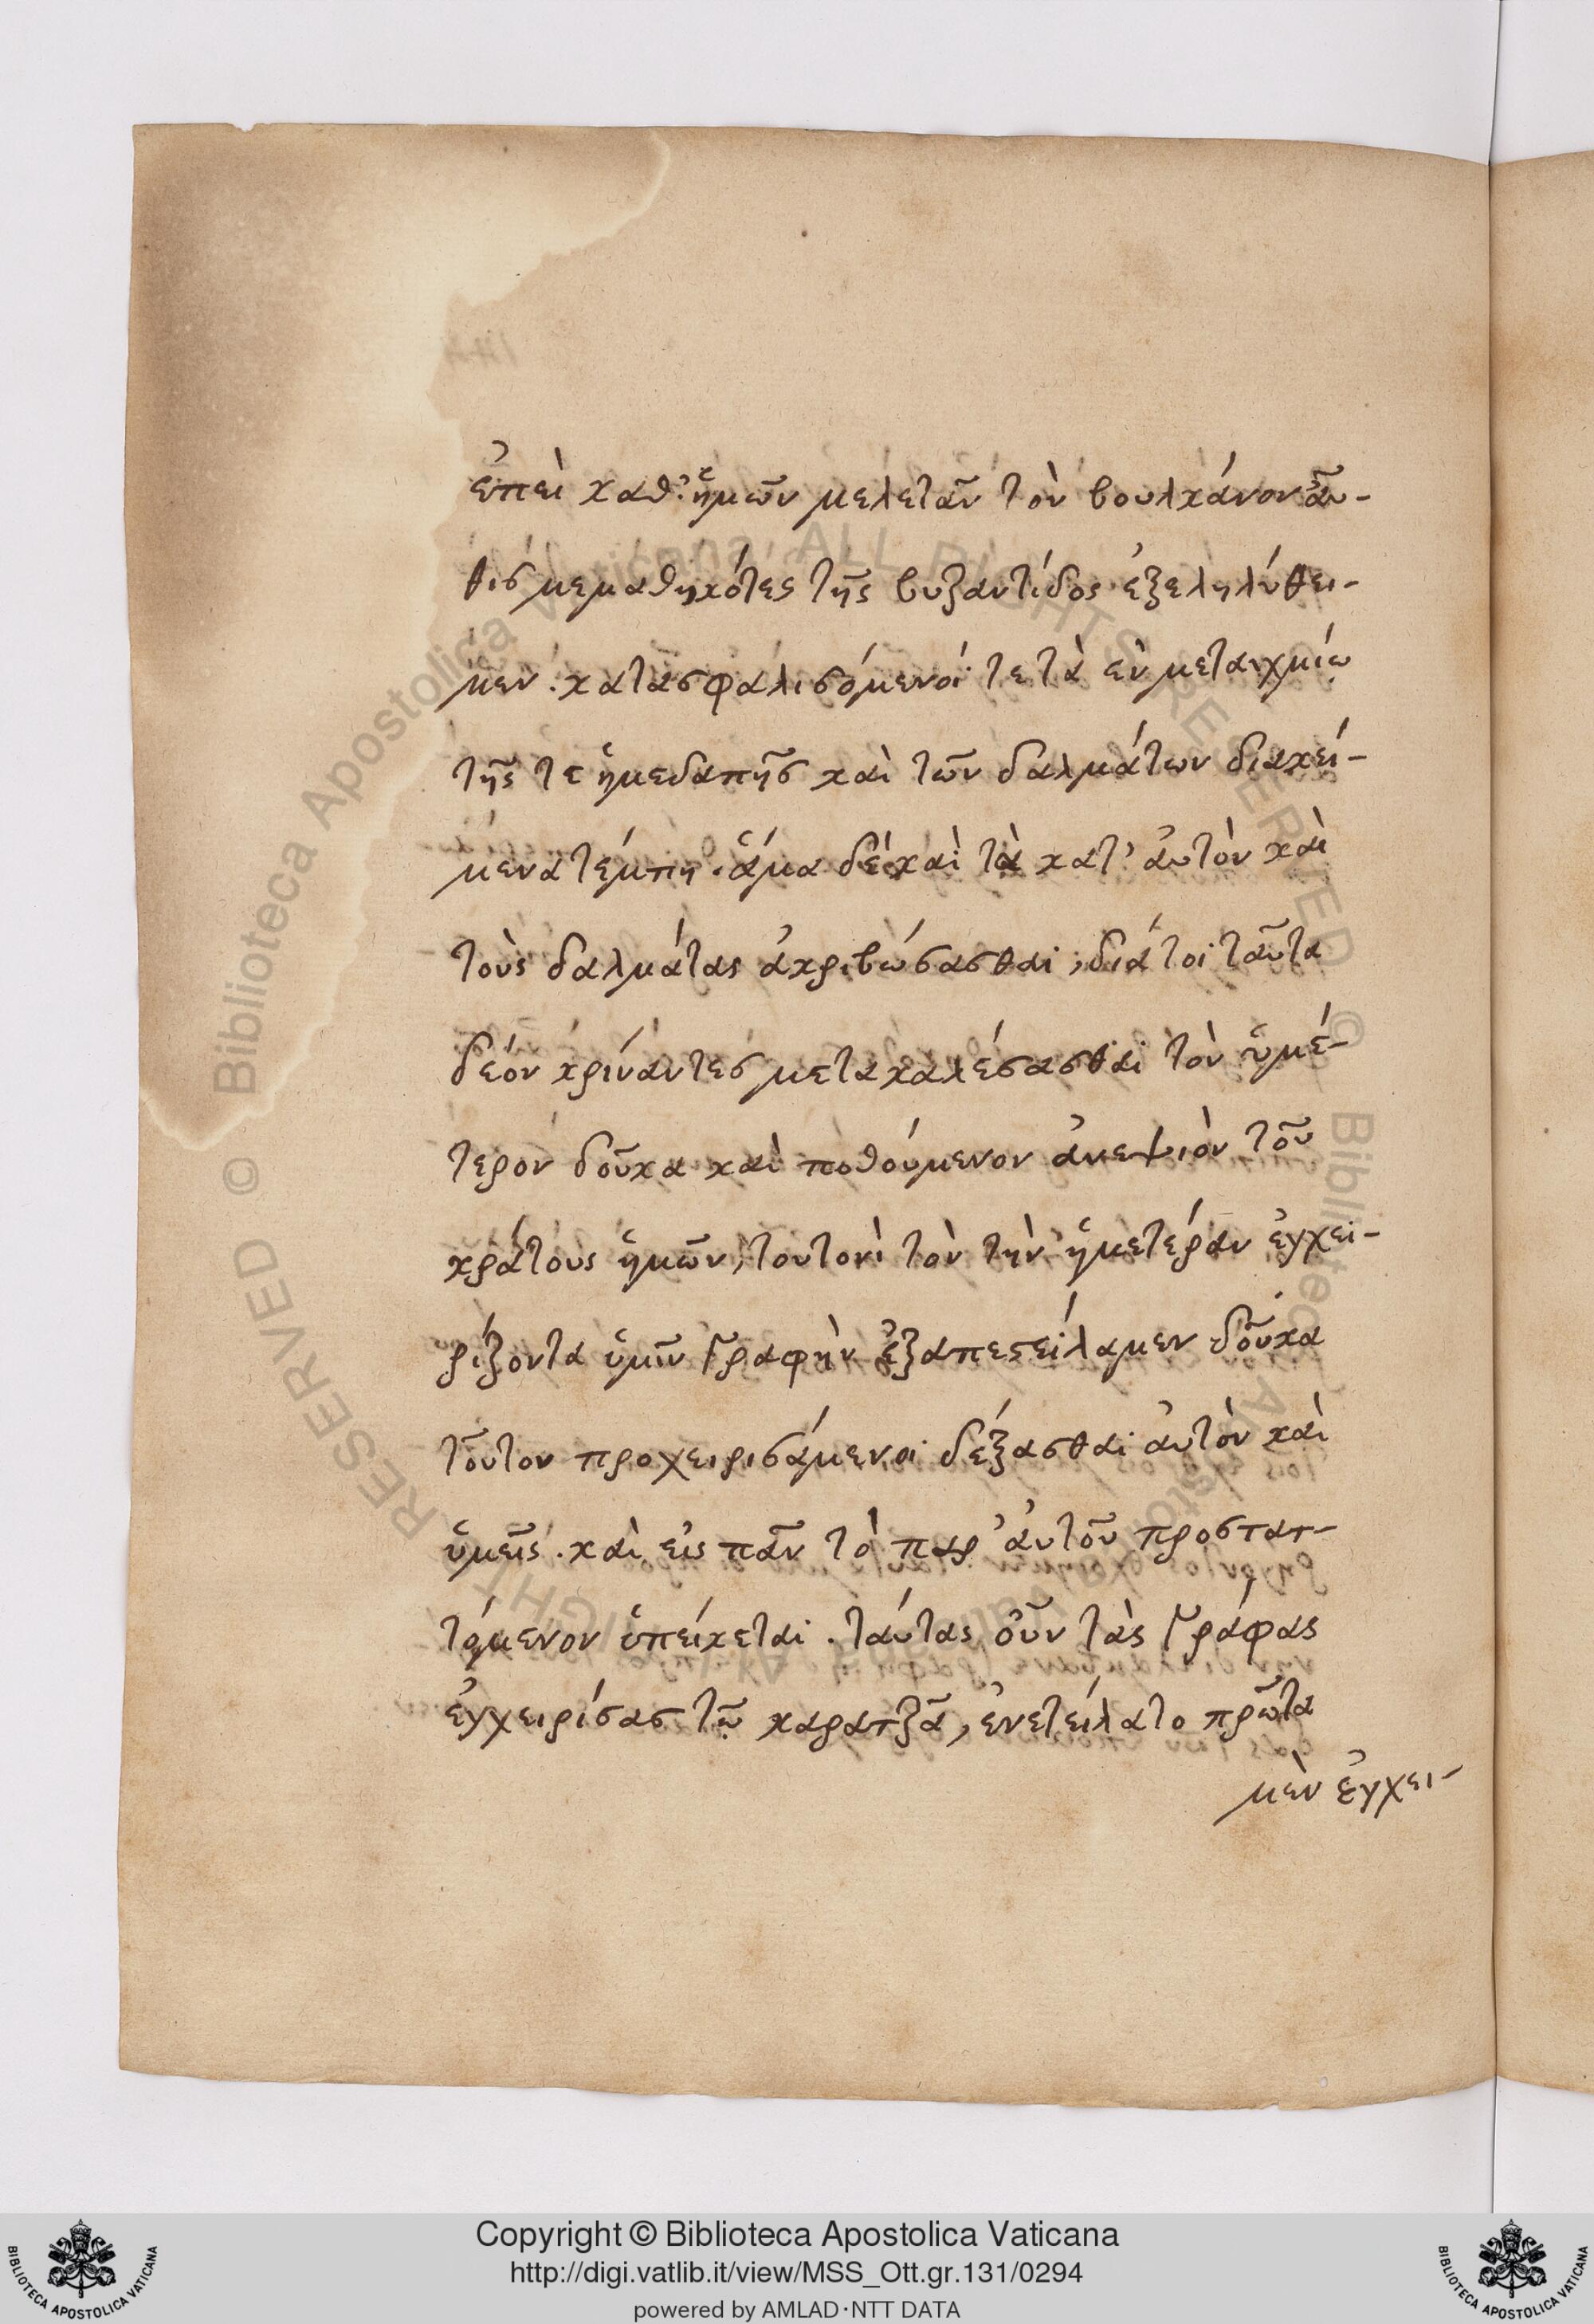 ἐπεὶ καθ' ἡμῶν μελετᾶν τὸν βουλκάνον αὖ-
θις μεμαθηκότες τῆς βυζαντίδος ἐξεληλύθει-
μεν . κατασφαλισόμενοί τε τὰ ἐν μεταιχμίῳ
τῆς τε ἡμεδαπῆς καὶ τῶν δαλμάτων διακεί-
μενα τέμπη . ἅμα δὲ καὶ τὰ κατ' αὐτὸν καὶ
τοὺς δαλμάτας ἀκριβώσασθαι , διά τοι ταῦτα
δέον κρίναντες μετακαλέσασθαι τὸν ὑμέ-
τερον δοῦκα καὶ ποθούμενον ἀνεψιὸν τοῦ
κράτους ἡμῶν , τουτονὶ τὸν τὴν ἡμετέραν ἐγχει-
ρίζοντα ὑμῖν γραφὴν ἐξαπεστείλαμεν δοῦκα
τοῦτον προχειρισάμενοι δέξασθαι αὐτὸν καὶ
ὑμεῖς . καὶ εἰς πᾶν τὸ παρ' αὐτοῦ προστατ-
τόμενον ὑπείκεται . ταύτας οὖν τὰς γράφας
ἐγχειρίσας τῷ καρατζᾶ , ἐνετείλατο πρῶτα
μὲν ἐγχει-
Copyright © Biblioteca Apostolica Vaticana
http://digi.vatlib.it/view/MSS_Ott.gr.131/0294
powered by AMLAD·NTT DATA